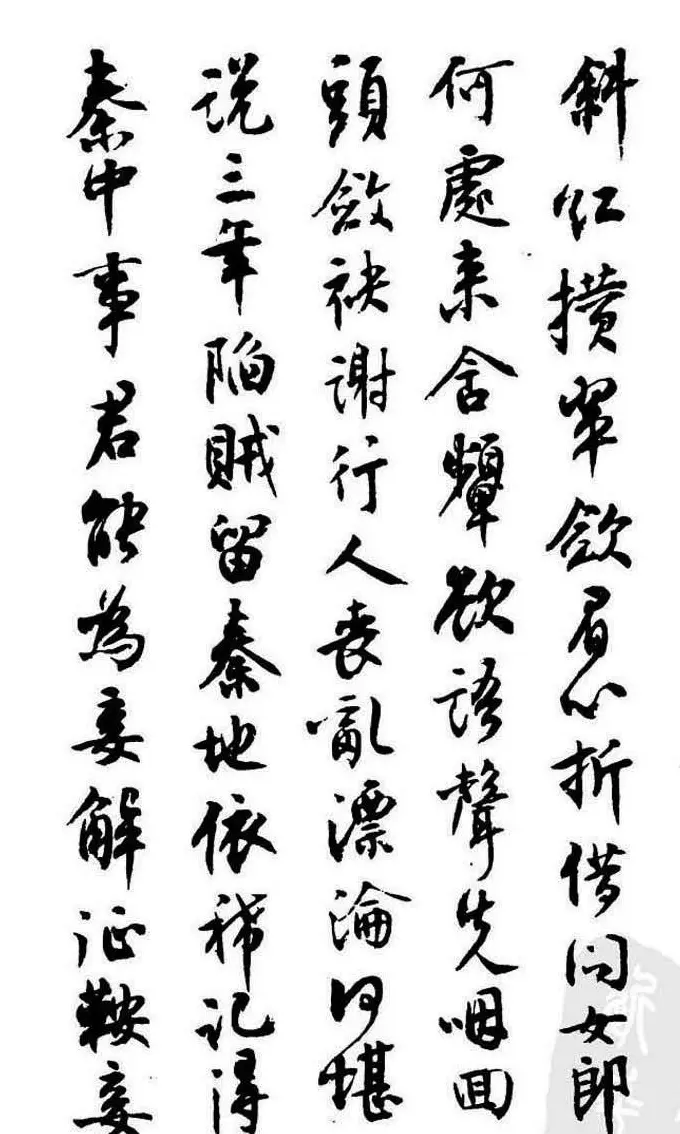 斜紅攢翠斂眉心折借問女郎
何處来含顰欲語聲先咽回
頭斂袂謝行人喪亂漂淪何堪
説三年陷賊留秦地依稀記得
秦中事君能為妾解征鞍妾